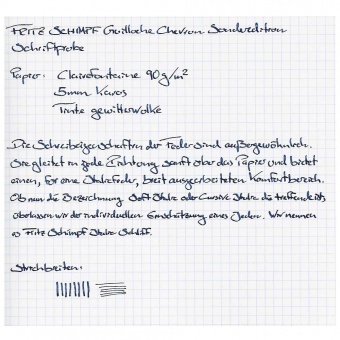 FRITZ SCHIMPF Guilloche Chevron Sonderedition
Schriftprobe
Papier: Clairefontaine 90g/m²
5mm Karos
Tinte gewitterwolke
Die Schreibeigenschaften der Feder sind außergewöhnlich.
Sie gleitet in jede Richtung sanft über das Papier und bietet
einen, für eine Stubfeder, breit ausgearbeiteten Komfortbereich.
Ob nun die Bezeichnung Soft Stub oder Cursive Stub die treffendste ist,
überlassen wir der individuellen Einschätzung eines Jeden. Wir nennen
es Fritz Schimpf Stub Schliff.
Strichbreiten: